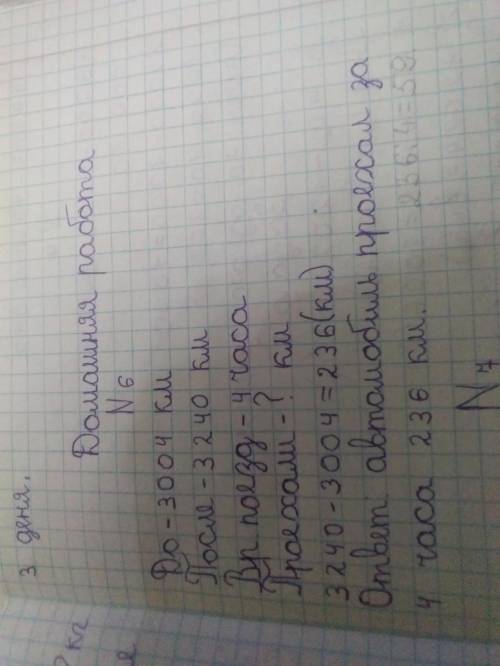 3 деня.
Домашняя работа
N 6
До - 3004 км
После - 3240 км
Вр поезд - 4 часа
Проехали - ? км
3240 - 3004 = 236 (км)
Ответ: автомобиль проехал за
4 часа 236 км.
236:4=59
N 7
кг